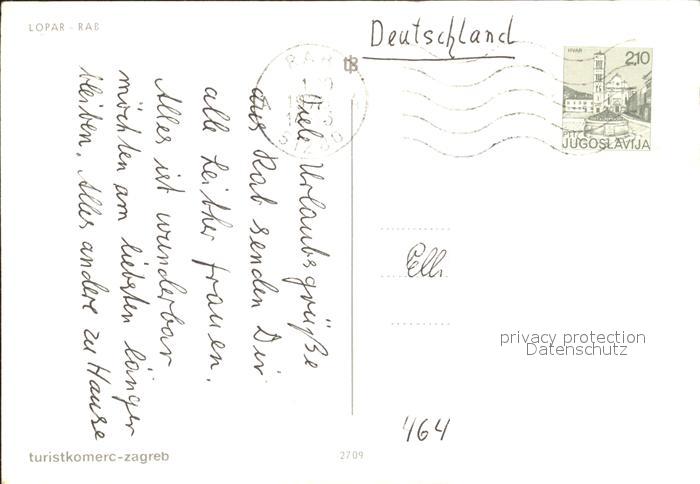 LOPAR - RAB
Deutschland
HVAR
2,10
PTT
JUGOSLAVIJA
RAB
51280
Viele Urlaubsgrüße
aus Rab senden Dir
alle Leither Frauen.
Alles ist wunderbar
möchten am liebsten länger
bleiben. Alles andere zu Hause
Elli
privacy protection
Datenschutz
464
turistkomerc-zagreb
2709